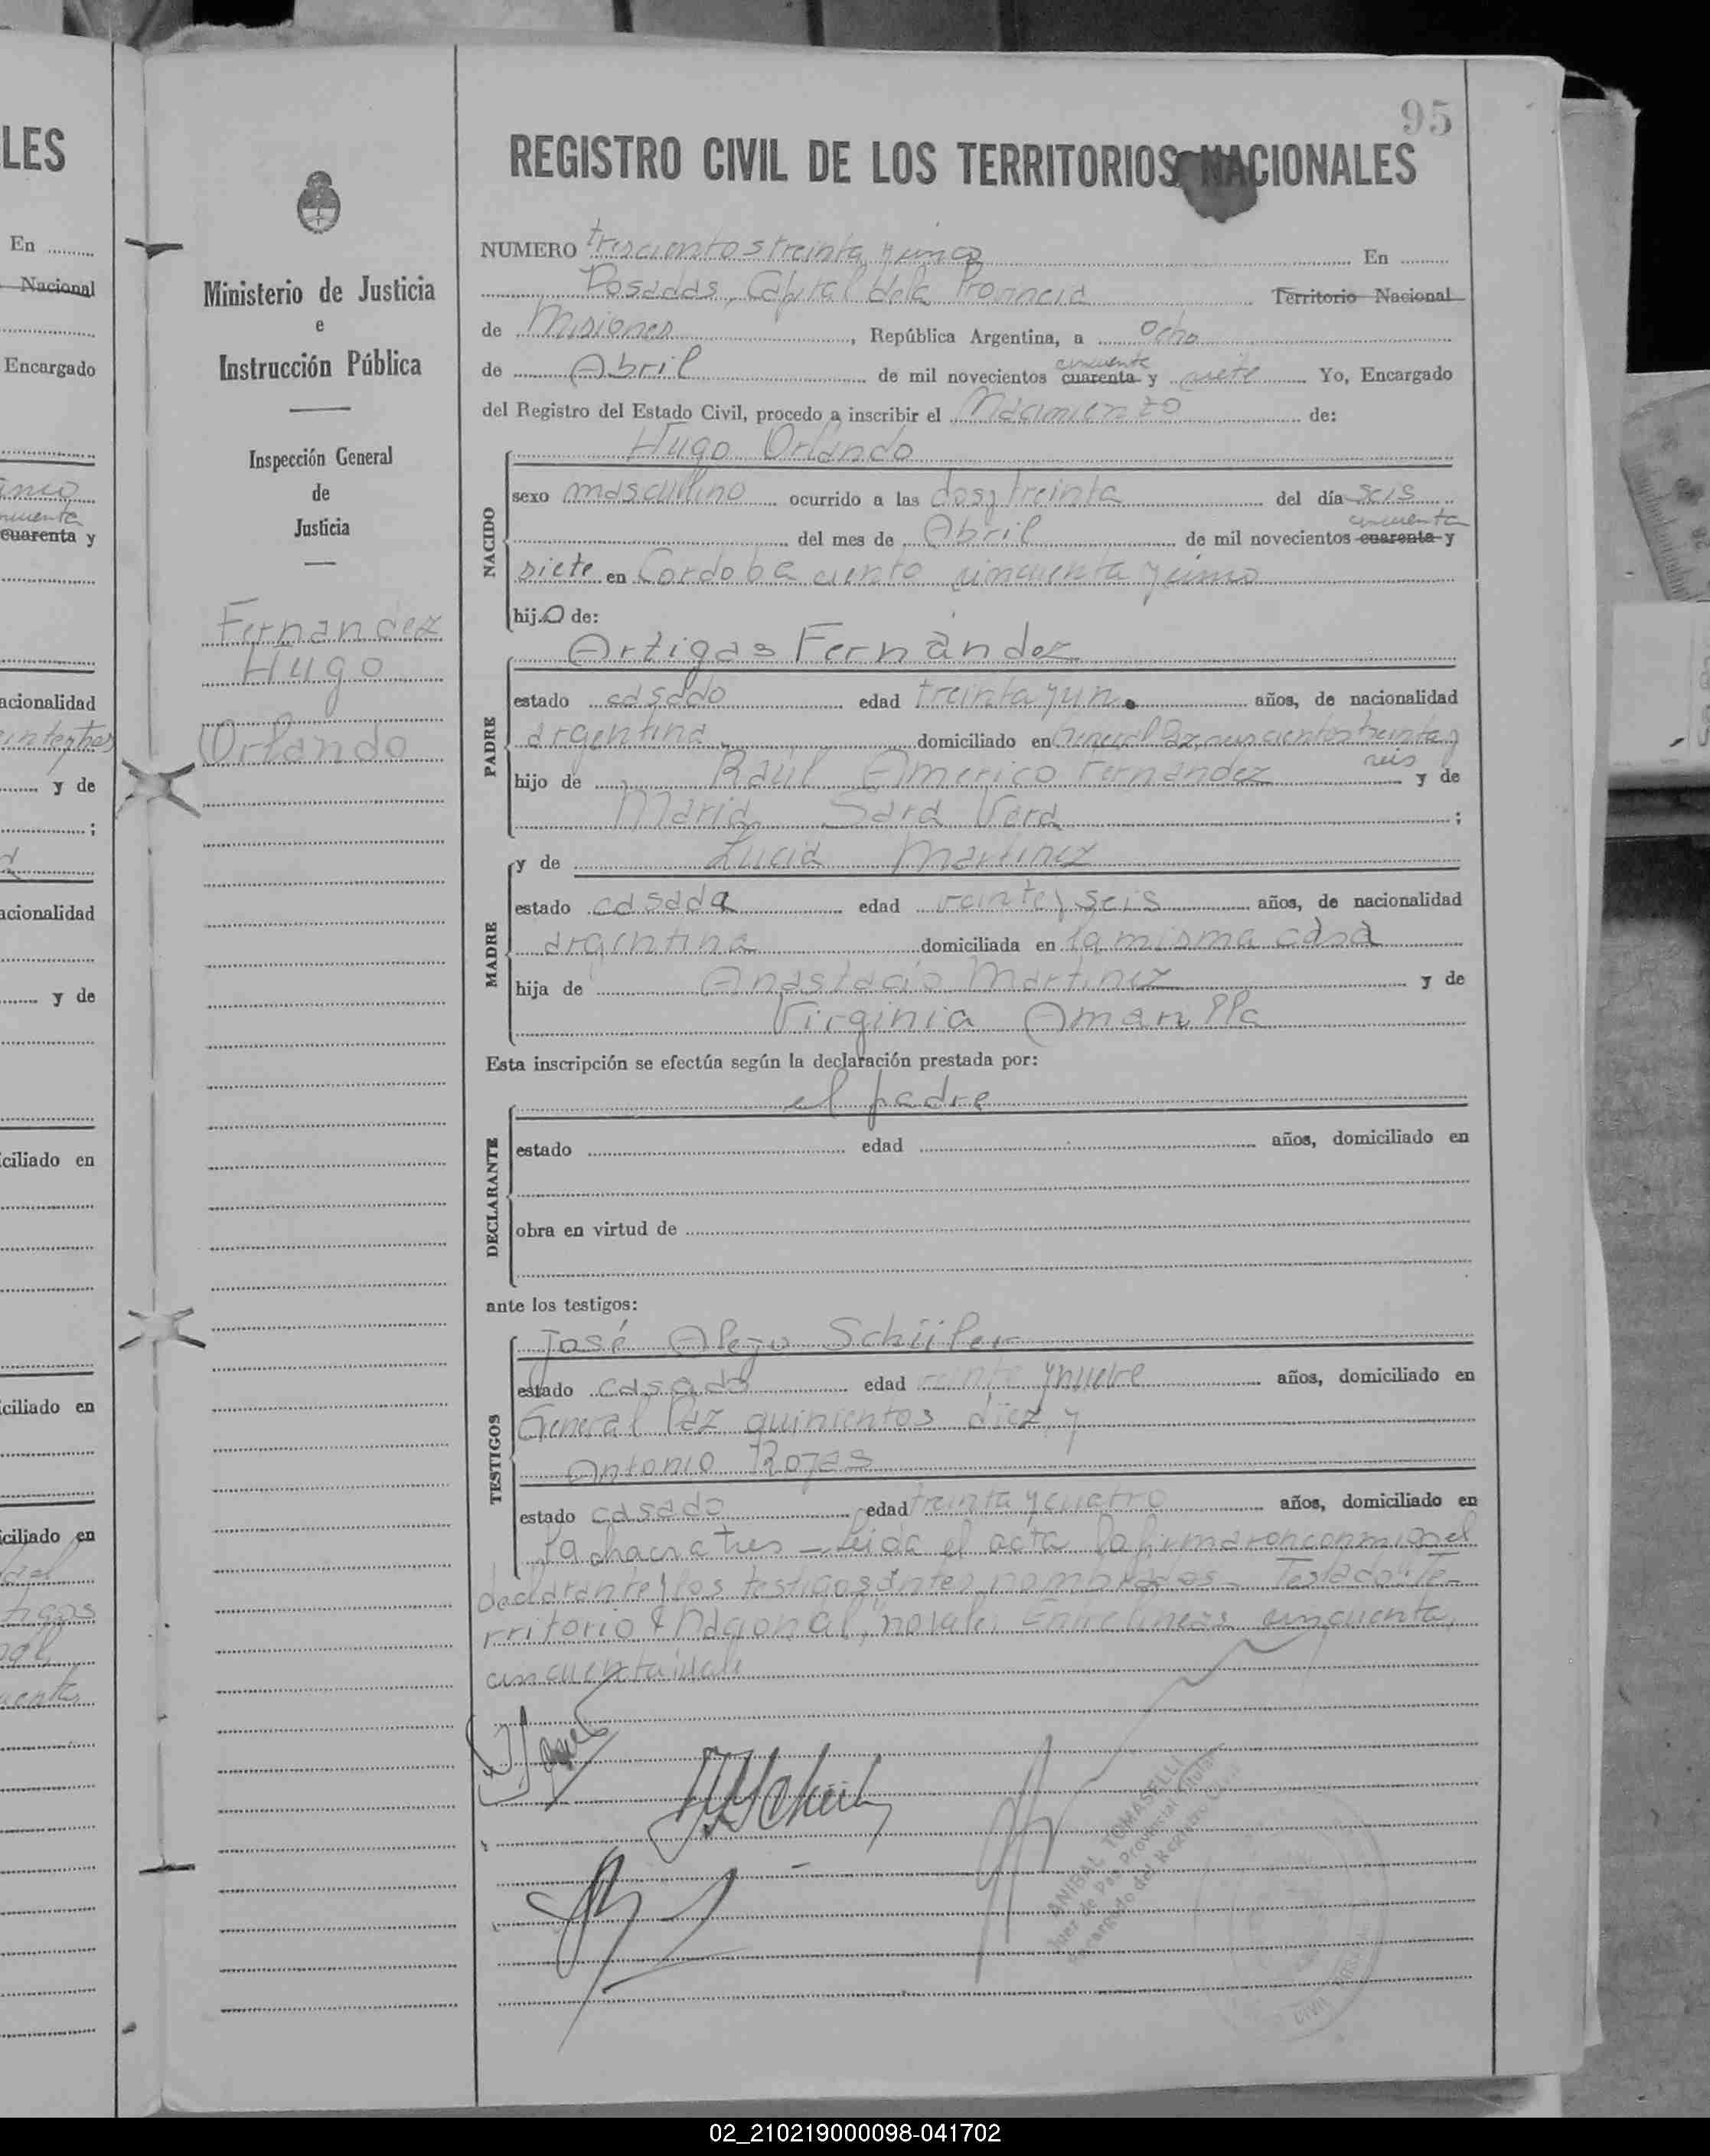 95
REGISTRO CIVIL DE LOS TERRITORIOS NACIONALES
Ministerio de Justicia
e
Instrucción Pública
Inspección General
de
Justicia
Fernandez
Hugo
Orlando
NUMERO trescientos treinta y cinco En
Posadas, Capital de la Provincia Territorio Nacional
de Misiones, República Argentina, a ocho
cincuenta
de Abril de mil novecientos cuarenta y siete Yo, Encargado
del Registro del Estado Civil, procedo a inscribir el Nacimiento de:
Hugo Orlando
NACIDO
sexo masculino ocurrido a las dos y treinta del día seis
cincuenta
del mes de Abril de mil novecientos cuarenta y
siete en Cordoba ciento cincuenta y cinco
hijo de:
PADRE
Artigas Fernández
estado casado edad treinta y un años, de nacionalidad
argentina domiciliado en General Paz, treinta y
seis
hijo de Raúl Americo Fernandez y de
Maria Sara Vera ;
MADRE
y de Lucia Martinez
estado casada edad veinte y seis años, de nacionalidad
argentina domiciliada en la misma casa
hija de Anastacio Martinez y de
Virginia Amarilla
Esta inscripción se efectúa según la declaración prestada por:
DECLARANTE
el padre
estado edad años, domiciliado en
obra en virtud de
ante los testigos:
TESTIGOS
José Alejo Schüler
estado casado edad veinte y nueve años, domiciliado en
General Paz quinientos diez y
Antonio Rojas
estado casado edad treinta y cuatro años, domiciliado en
la chacra tres — Leida el acta la firmaron conmigo el
declarante y los testigos antes nombrados — Testado "Te-
rritorio Nacional", no vale, Entre lineas cincuenta,
cincuenta, vale
ANIBAL TOMASELLI
Juez de Paz Provincial Titular
Encargado del Registro Civil
LES
En
Nacional
Encargado
cuarenta y
acionalidad
y de
;
acionalidad
y de
ciliado en
ciliado en
ciliado en
02_210219000098-041702